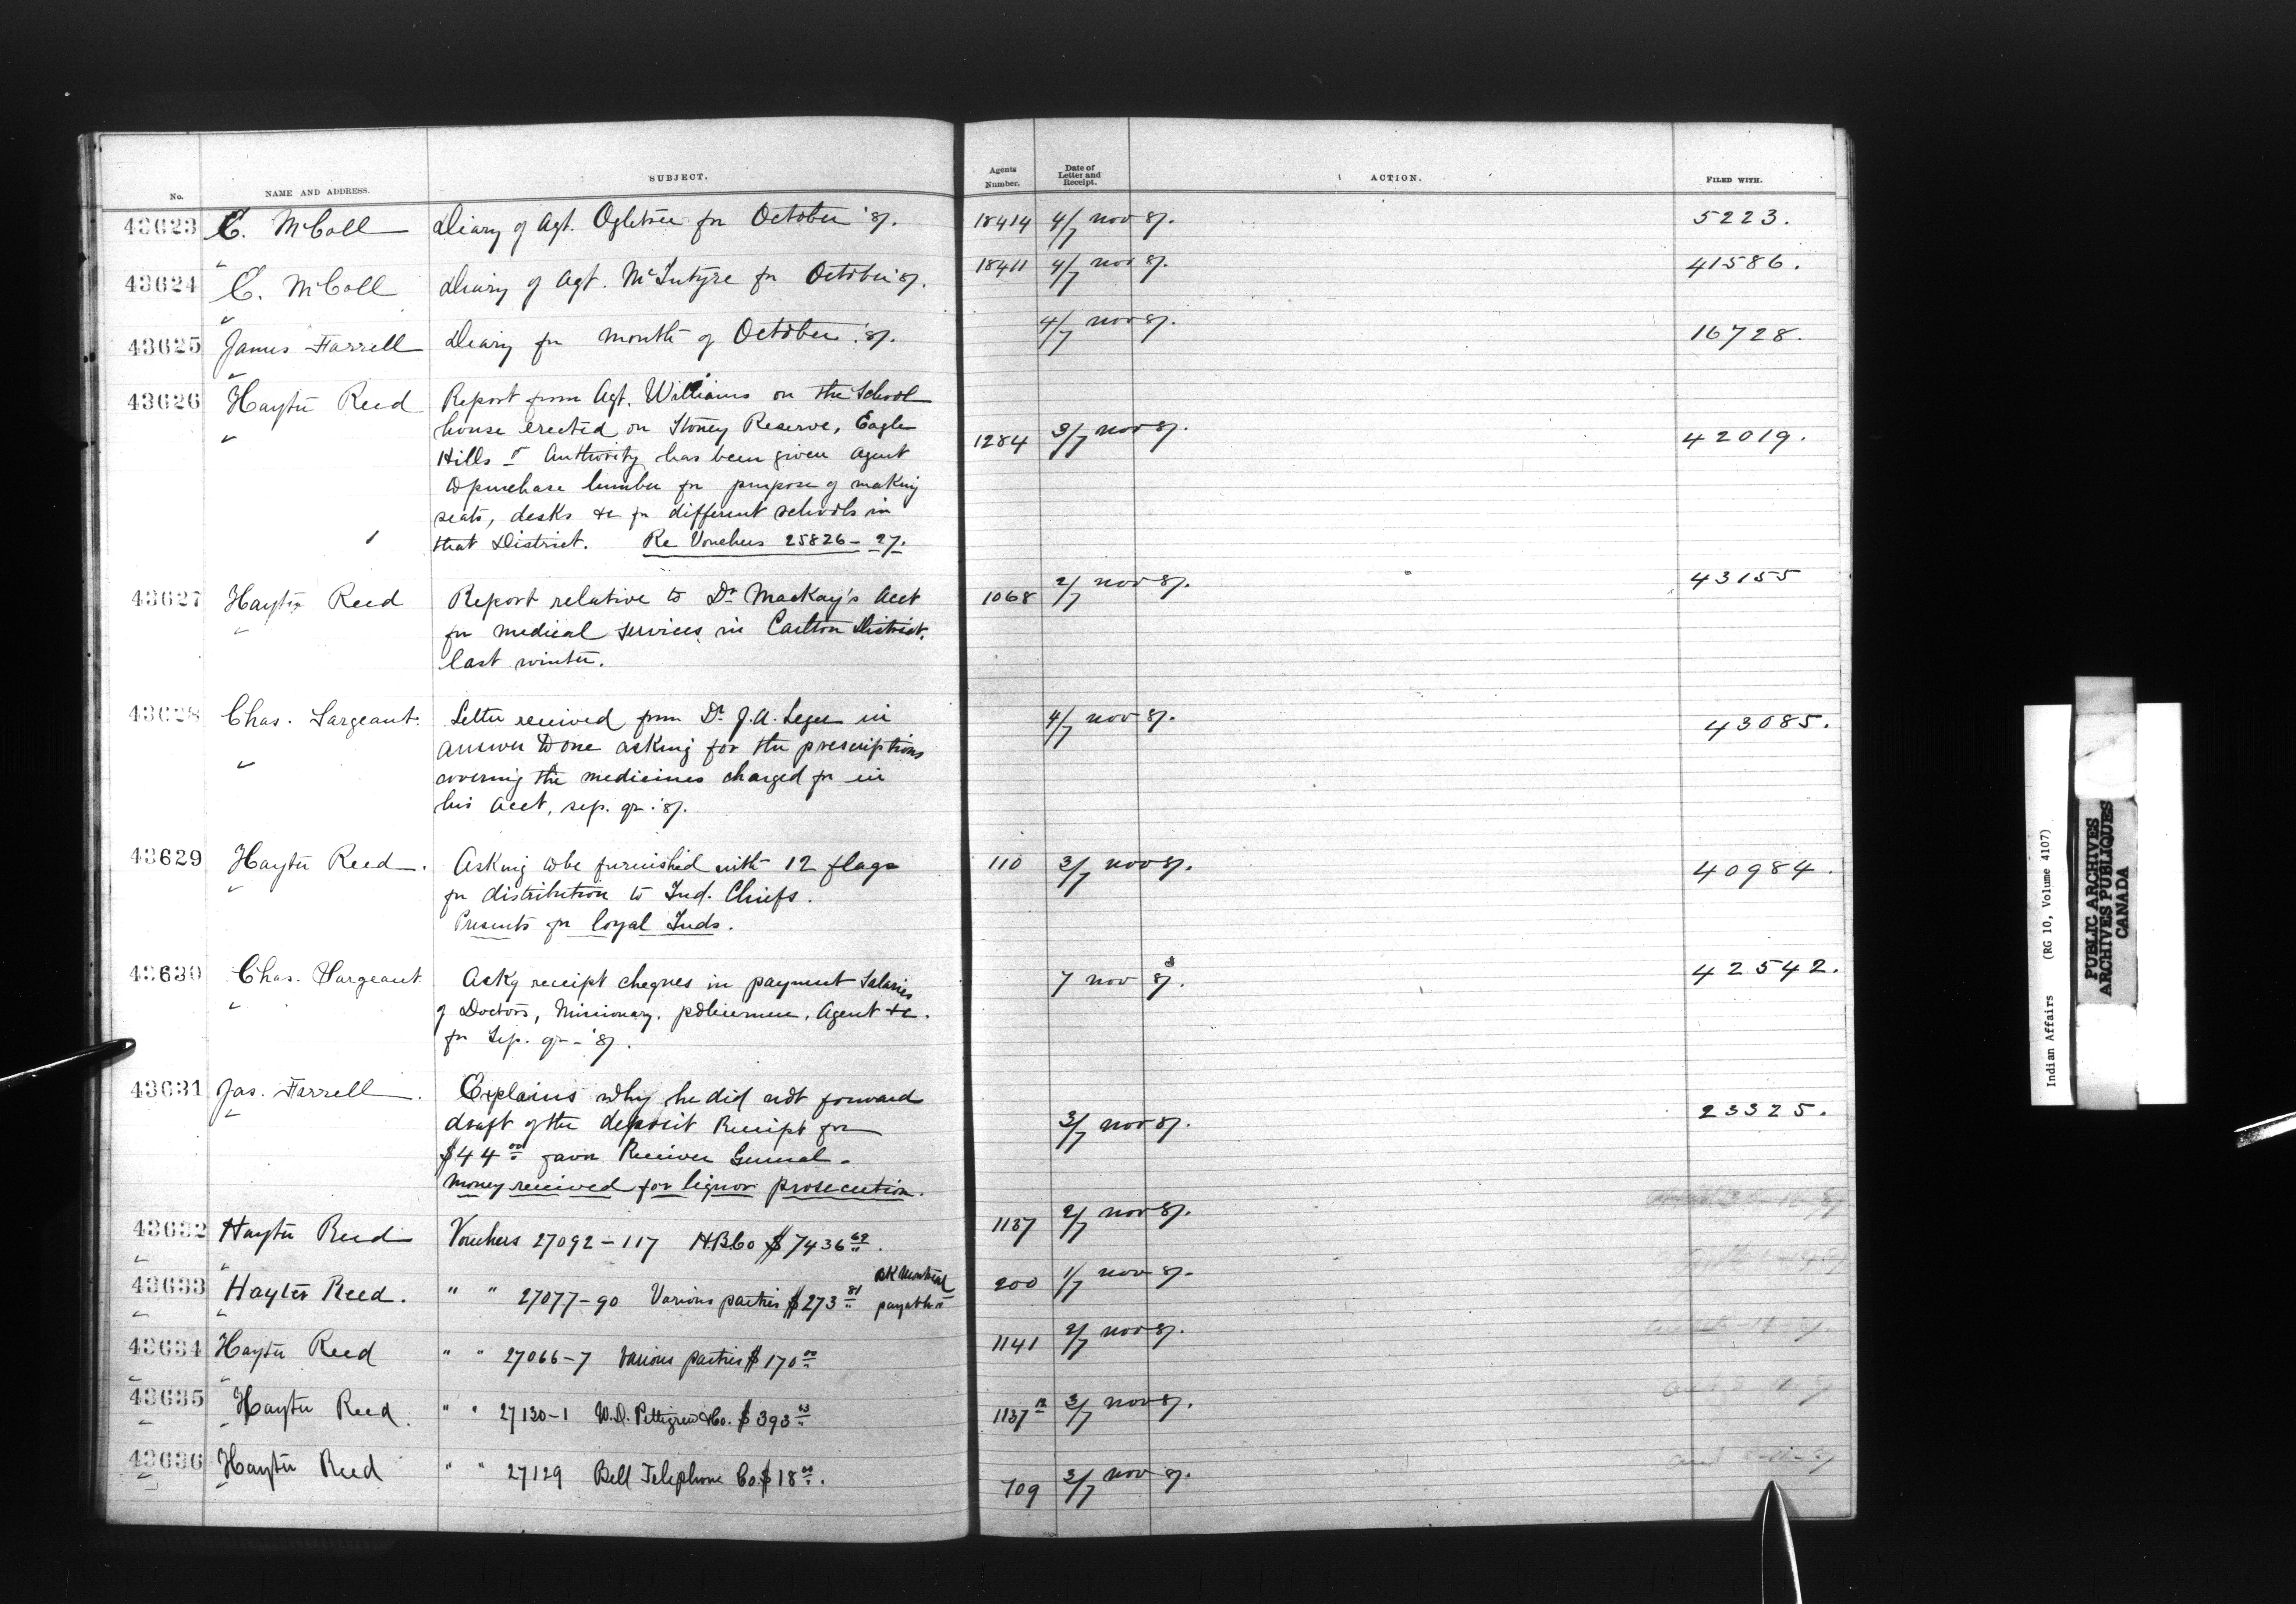 No. NAME AND ADDRESS. SUBJECT. Agents Number. Date of Letter and Receipt. ACTION. FILED WITH.
43623 E. McColl Diary of Agt. Ogletree for October '87. 18414 4/7 Nov 87. 5223.
43624 E. McColl Diary of Agt. McIntyre for October '87. 18411 4/7 Nov 87. 41586.
43625 James Farrell Diary for month of October '87. 4/7 Nov 87. 16728.
43626 Hayter Reed Report from Agt. Williams on the School
house erected on Stoney Reserve, Eagle 1284 3/7 Nov 87. 42019.
Hills & Authority has been given Agent
to purchase lumber for purpose of making
seats, desks &c for different schools in
that District. Re Vouchers 25826-27.
43627 Hayter Reed Report relative to Dr. MacKay's Acct 1068 2/7 Nov 87. 43155
for medical services in Carlton District,
last winter.
43628 Chas. Sargeant. Letter received from Dr. J.A. Leger in 4/7 Nov 87. 43085.
answer to one asking for the prescriptions
covering the medicines charged for in
his Acct, Sep. qr. '87.
43629 Hayter Reed. Asking to be furnished with 12 flags 110 3/7 Nov 87. 40984.
for distribution to Ind. Chiefs.
Presents for loyal Inds.
43630 Chas. Sargeant Ackg receipt cheques in payment Salaries 7 Nov 87. 42542.
of Doctors, Missionary, policemen, Agent &c.
for Sep. qr - '87.
43631 Jas. Farrell. Explains why he did not forward
draft of the deposit Receipt for 3/7 Nov 87. 23325.
$44 00 favor Receiver General -
Money received for liquor prosecution.
43632 Hayter Reed Vouchers 27092-117 H.B.Co $7436 69. 1137 2/7 Nov 87.
43633 Hayter Reed. " " 27077-90 Various parties $273 81 BK Montreal payable at 200 1/7 Nov 87.
43634 Hayter Reed " " 27066-7 Various parties $170 00 1141 2/7 Nov 87.
43635 Hayter Reed. " " 27130-1 W.D. Pettigrew & Co. $393 1137 3/7 Nov 87.
43636 Hayter Reed " " 27129 Bell Telephone Co. $18 00. 709 3/7 Nov 87.
Indian Affairs (RG 10, Volume 4107)
PUBLIC ARCHIVES
ARCHIVES PUBLIQUES
CANADA